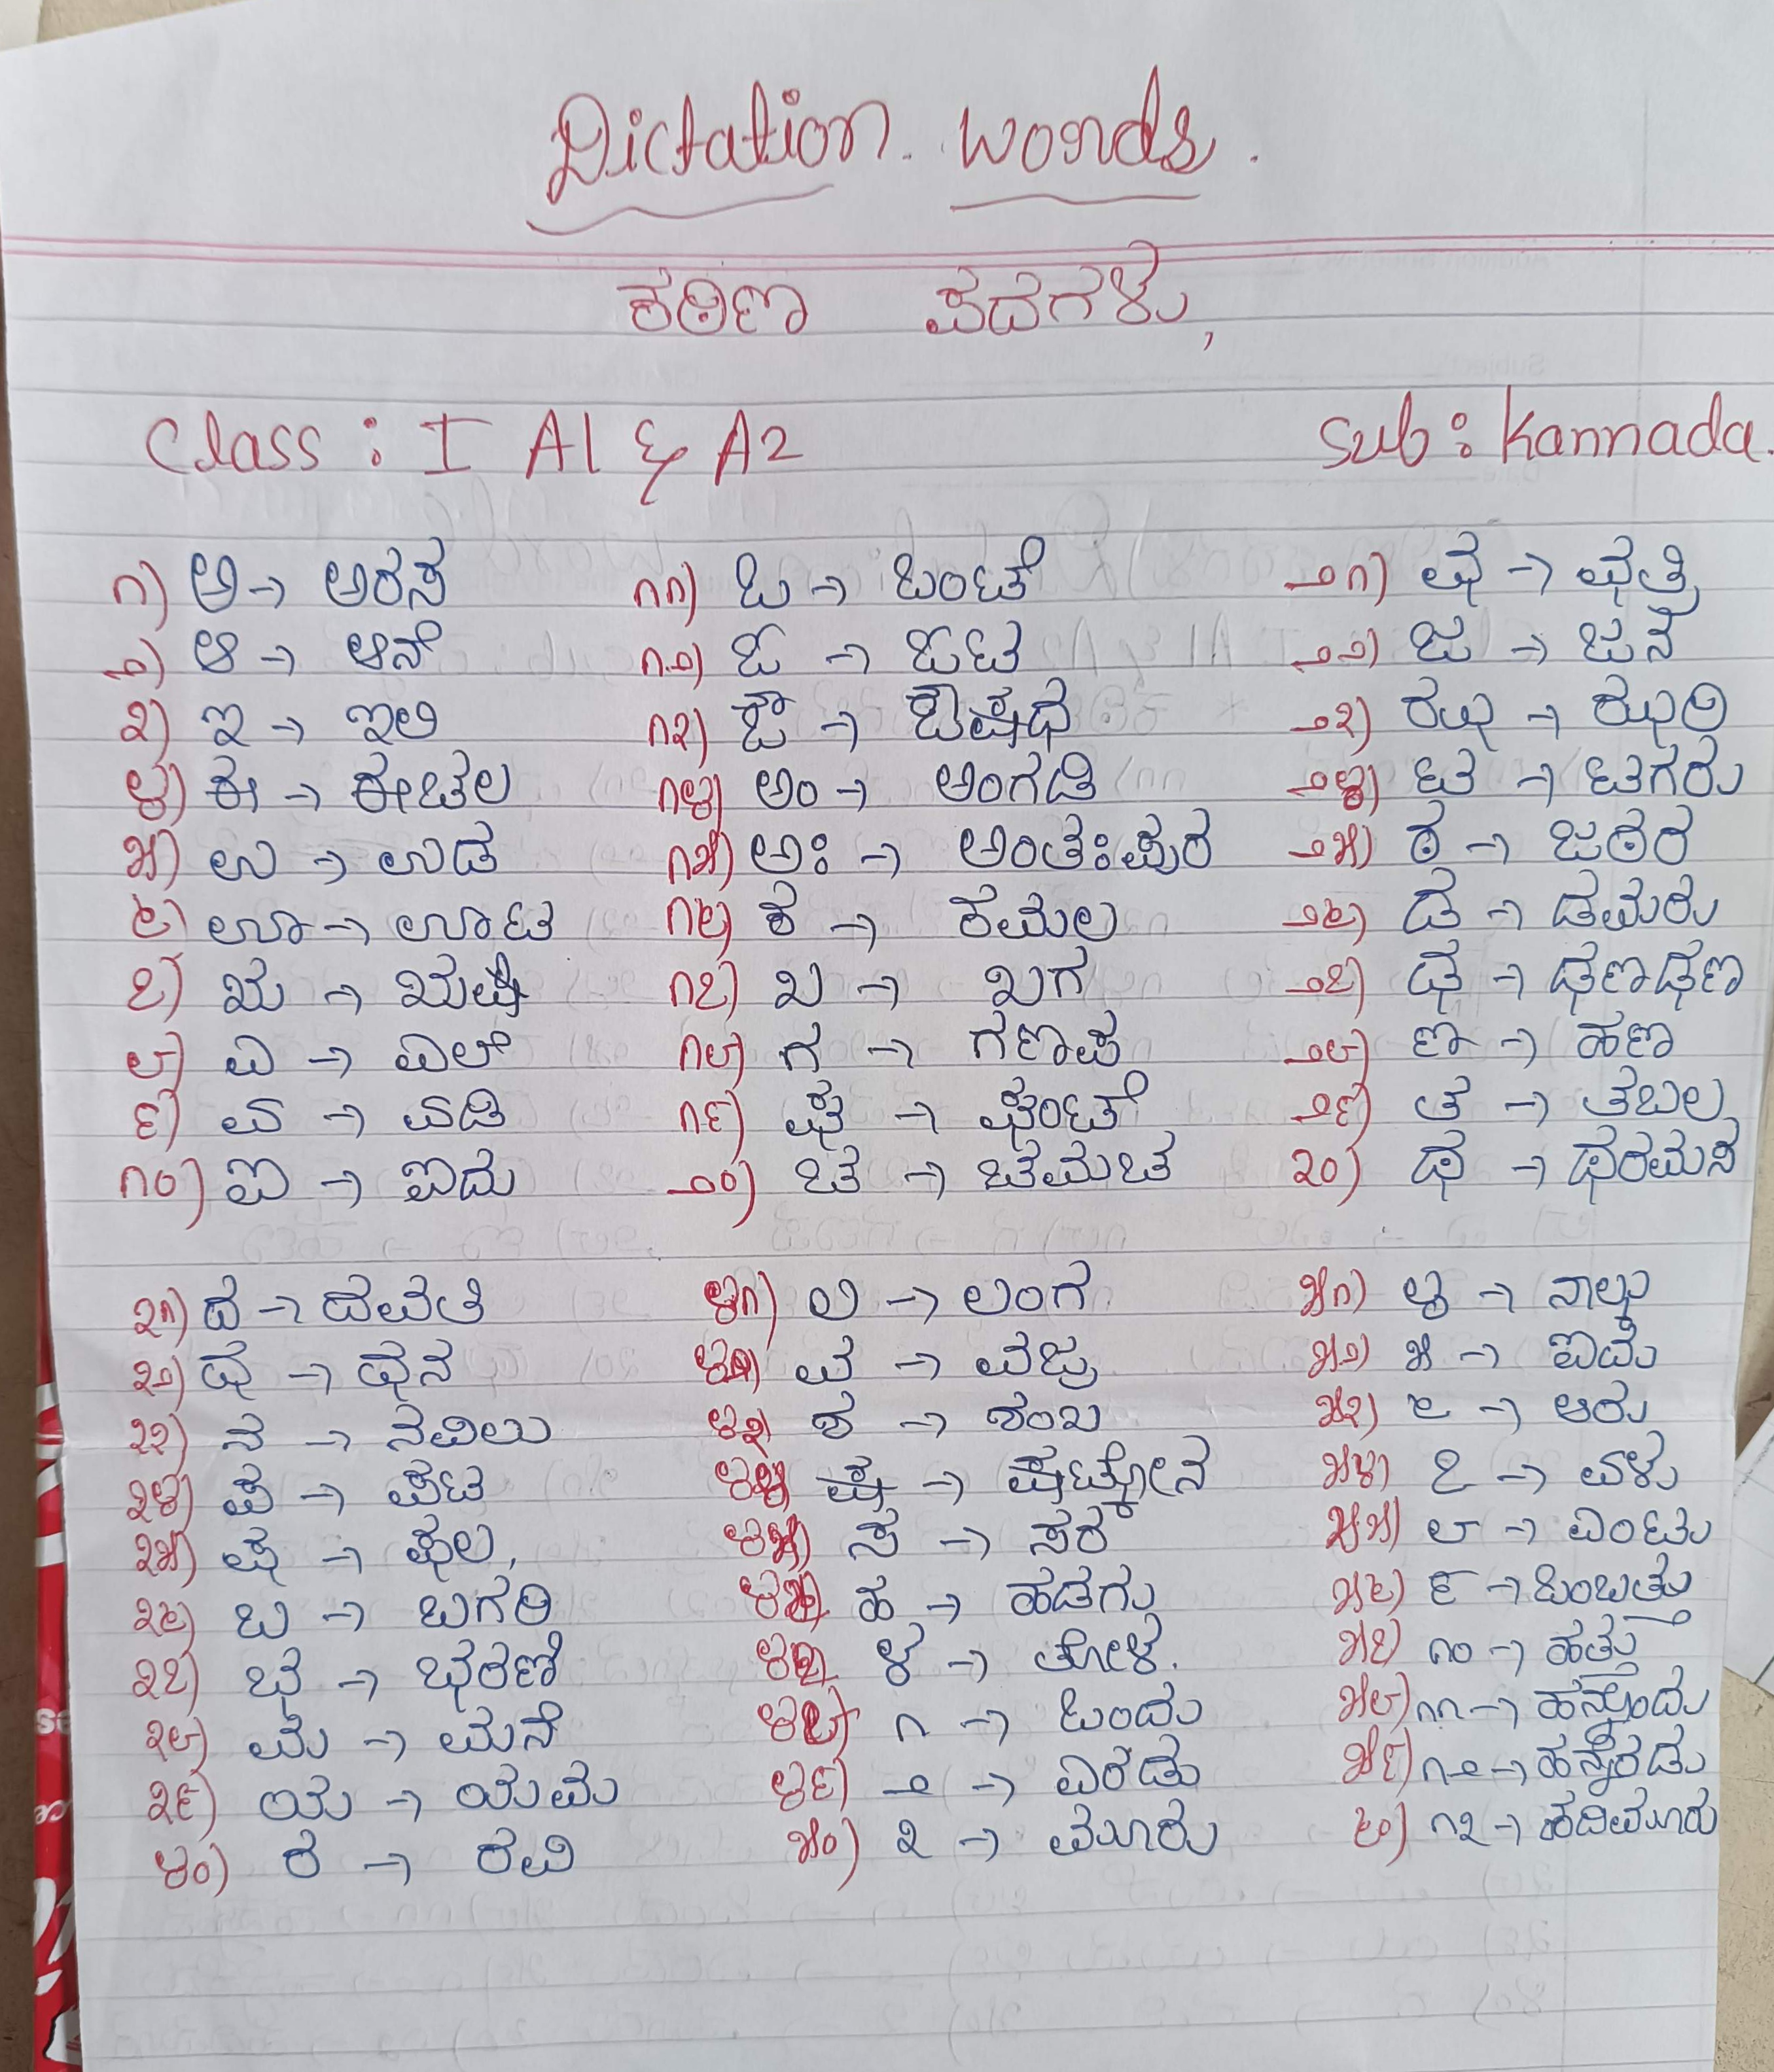 Dictation words.
ಕಠಿಣ ಪದಗಳು,
Class : I A1 & A2 Sub : Kannada.
೧) ಅ → ಅರಸ ೧೧) ಒ → ಒಂಟೆ ೨೧) ಛ → ಛತ್ರಿ
೨) ಆ → ಆನೆ ೧೨) ಓ → ಓಟ ೨೨) ಜ → ಜನ
೩) ಇ → ಇಲಿ ೧೩) ಔ → ಔಷಧ ೨೩) ಝ → ಝರಿ
೪) ಈ → ಈಚಲ ೧೪) ಅಂ → ಅಂಗಡಿ ೨೪) ಟ → ಟಗರು
೫) ಉ → ಉಡ ೧೫) ಅಃ → ಅಂತಃಪುರ ೨೫) ಠ → ಜಠರ
೬) ಊ → ಊಟ ೧೬) ಕ → ಕಮಲ ೨೬) ಡ → ಡಮರು
೭) ಋ → ಋಷಿ ೧೭) ಖ → ಖಗ ೨೭) ಢ → ಢಣಢಣ
೮) ಎ → ಎಲೆ ೧೮) ಗ → ಗಣಪ ೨೮) ಣ → ಹಣ
೯) ಏ → ಏಡಿ ೧೯) ಘ → ಘಂಟೆ ೨೯) ತ → ತಬಲ
೧೦) ಐ → ಐದು ೨೦) ಚ → ಚಮಚ ೩೦) ಥ → ಥರಮಸ
೩೧) ದ → ದವತಿ ೪೧) ಲ → ಲಂಗ ೫೧) ೪ → ನಾಲ್ಕು
೩೨) ಧ → ಧನ ೪೨) ವ → ವಜ್ರ ೫೨) ೫ → ಐದು
೩೩) ನ → ನವಿಲು ೪೩) ಶ → ಶಂಖ ೫೩) ೬ → ಆರು
೩೪) ಪ → ಪಟ ೪೪) ಷ → ಷಟ್ಕೋನ ೫೪) ೭ → ಏಳು
೩೫) ಫ → ಫಲ, ೪೫) ಸ → ಸರ ೫೫) ೮ → ಎಂಟು
೩೬) ಬ → ಬಗರಿ ೪೬) ಹ → ಹಡಗು ೫೬) ೯ → ಒಂಬತ್ತು
೩೭) ಭ → ಭರಣಿ ೪೭) ಳ → ತೋಳ. ೫೭) ೧೦ → ಹತ್ತು
೩೮) ಮ → ಮನೆ ೪೮) ೧ → ಒಂದು ೫೮) ೧೧ → ಹನ್ನೊಂದು
೩೯) ಯ → ಯಮ ೪೯) ೨ → ಎರಡು ೫೯) ೧೨ → ಹನ್ನೆರಡು
೪೦) ರ → ರವಿ ೫೦) ೩ → ಮೂರು ೬೦) ೧೩ → ಹದಿಮೂರು